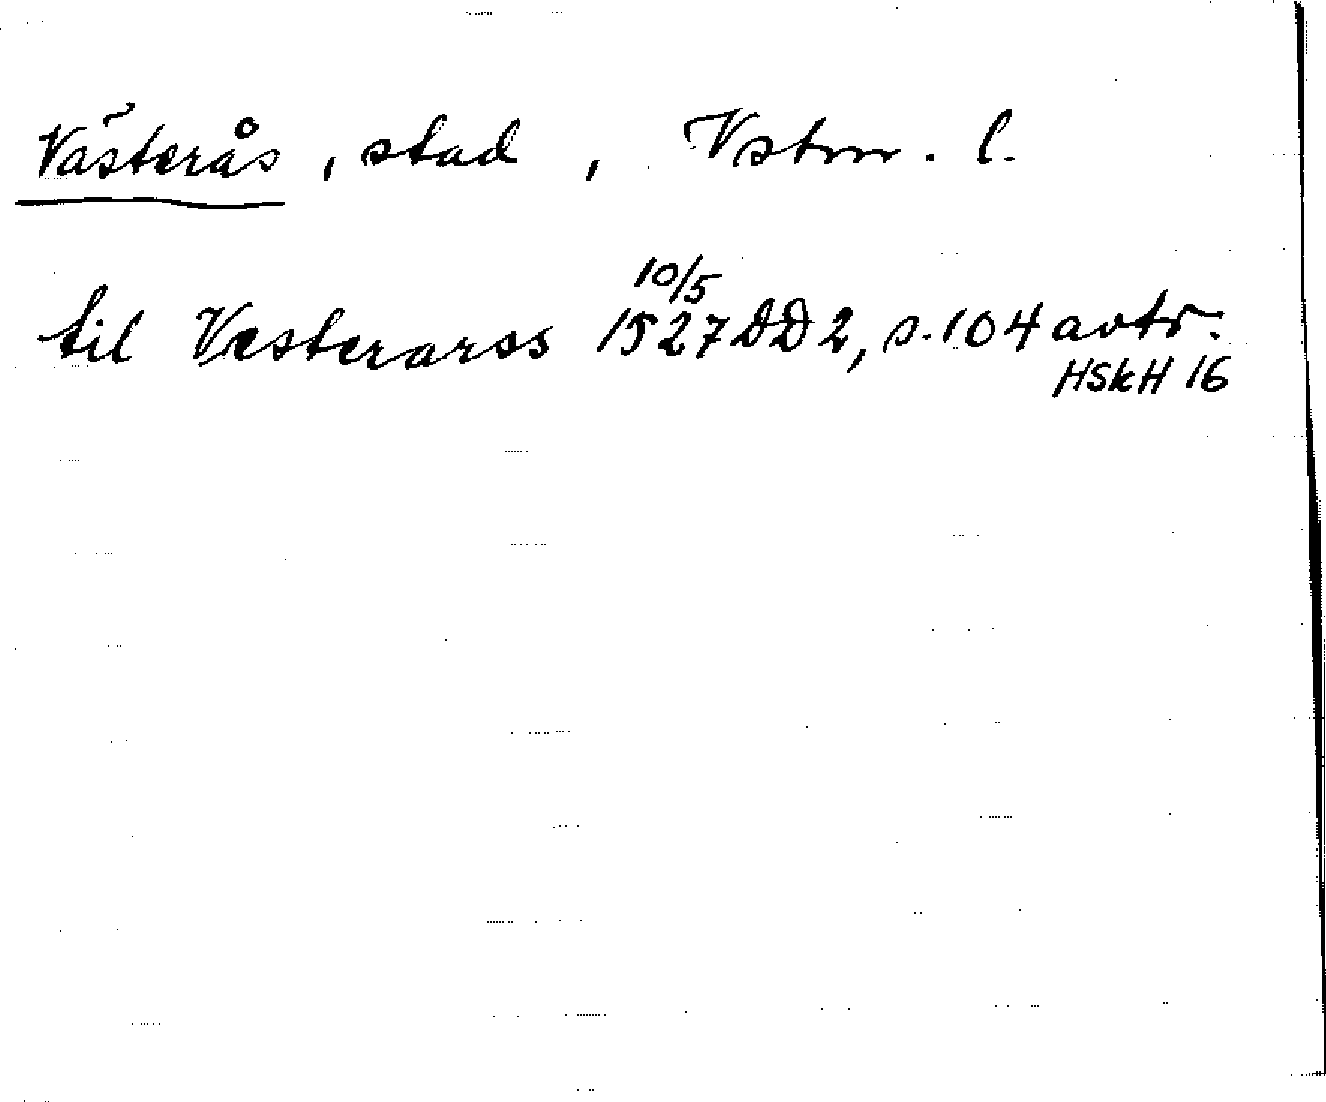 Västerås, stad, Vstm. l.
til Vesterarss 10/5 1527 DD 2, s. 104 avtr.
HSkH 16